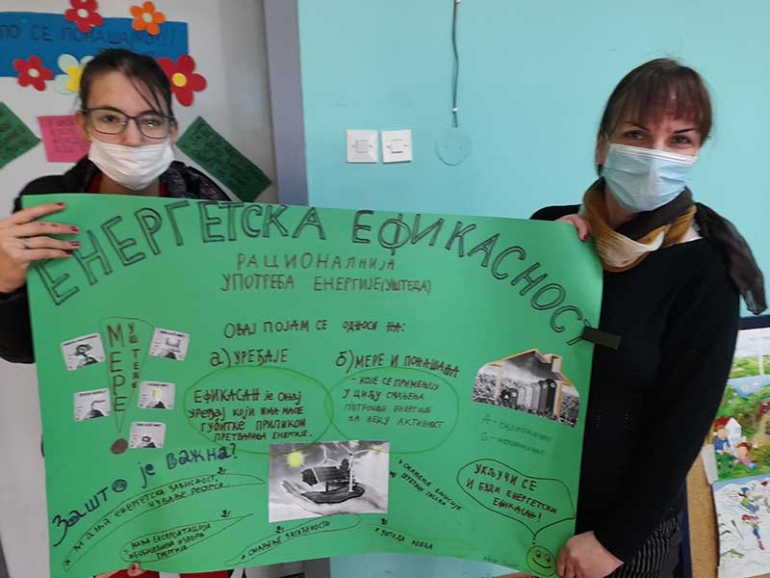 ПО СЕ ПОНАШАЈМО!!!
ЕНЕРГЕТСКА ЕФИКАСНОСТ
РАЦИОНАЛНИЈА
УПОТРЕБА ЕНЕРГИЈЕ(УШТЕДА)
ОВАЈ ПОЈАМ СЕ ОДНОСИ НА:
МЕРЕ
УШТЕДЕ
а) УРЕЂАЈЕ
ЕФИКАСАН ЈЕ ОНАЈ
УРЕЂАЈ КОЈИ ИМА МАЊЕ
ГУБИТКЕ ПРИЛИКОМ
ПРЕТВАРАЊА ЕНЕРГИЈЕ.
б) МЕРЕ И ПОНАШАЊА
- КОЈЕ СЕ ПРИМЕЊУЈУ
У ЦИЉУ СМАЊЕЊА
ПОТРОШЊЕ ЕНЕРГИЈЕ
ЗА НЕКУ АКТИВНОСТ
A - ЕКОНОМИЧНО
G - НЕЕКОНОМИЧНО
ЗАШТО ЈЕ ВАЖНА?
МАЊА ЕНЕРГЕТСКА ЗАВИСНОСТ,
ЧУВАЊЕ РЕСУРСА...
МАЊА ЕКСПЛОАТАЦИЈА
НЕОБНОВЉИВИХ ИЗВОРА
ЕНЕРГИЈЕ
СМАЊЕЊЕ ЗАГАЂЕНОСТИ
СМАЊЕЊЕ ЕМИСИЈЕ
ШТЕТНИХ ГАСОВА
УШТЕДА НОВЦА
УКЉУЧИ СЕ
И БУДИ ЕНЕРГЕТСКИ
ЕФИКАСАН!